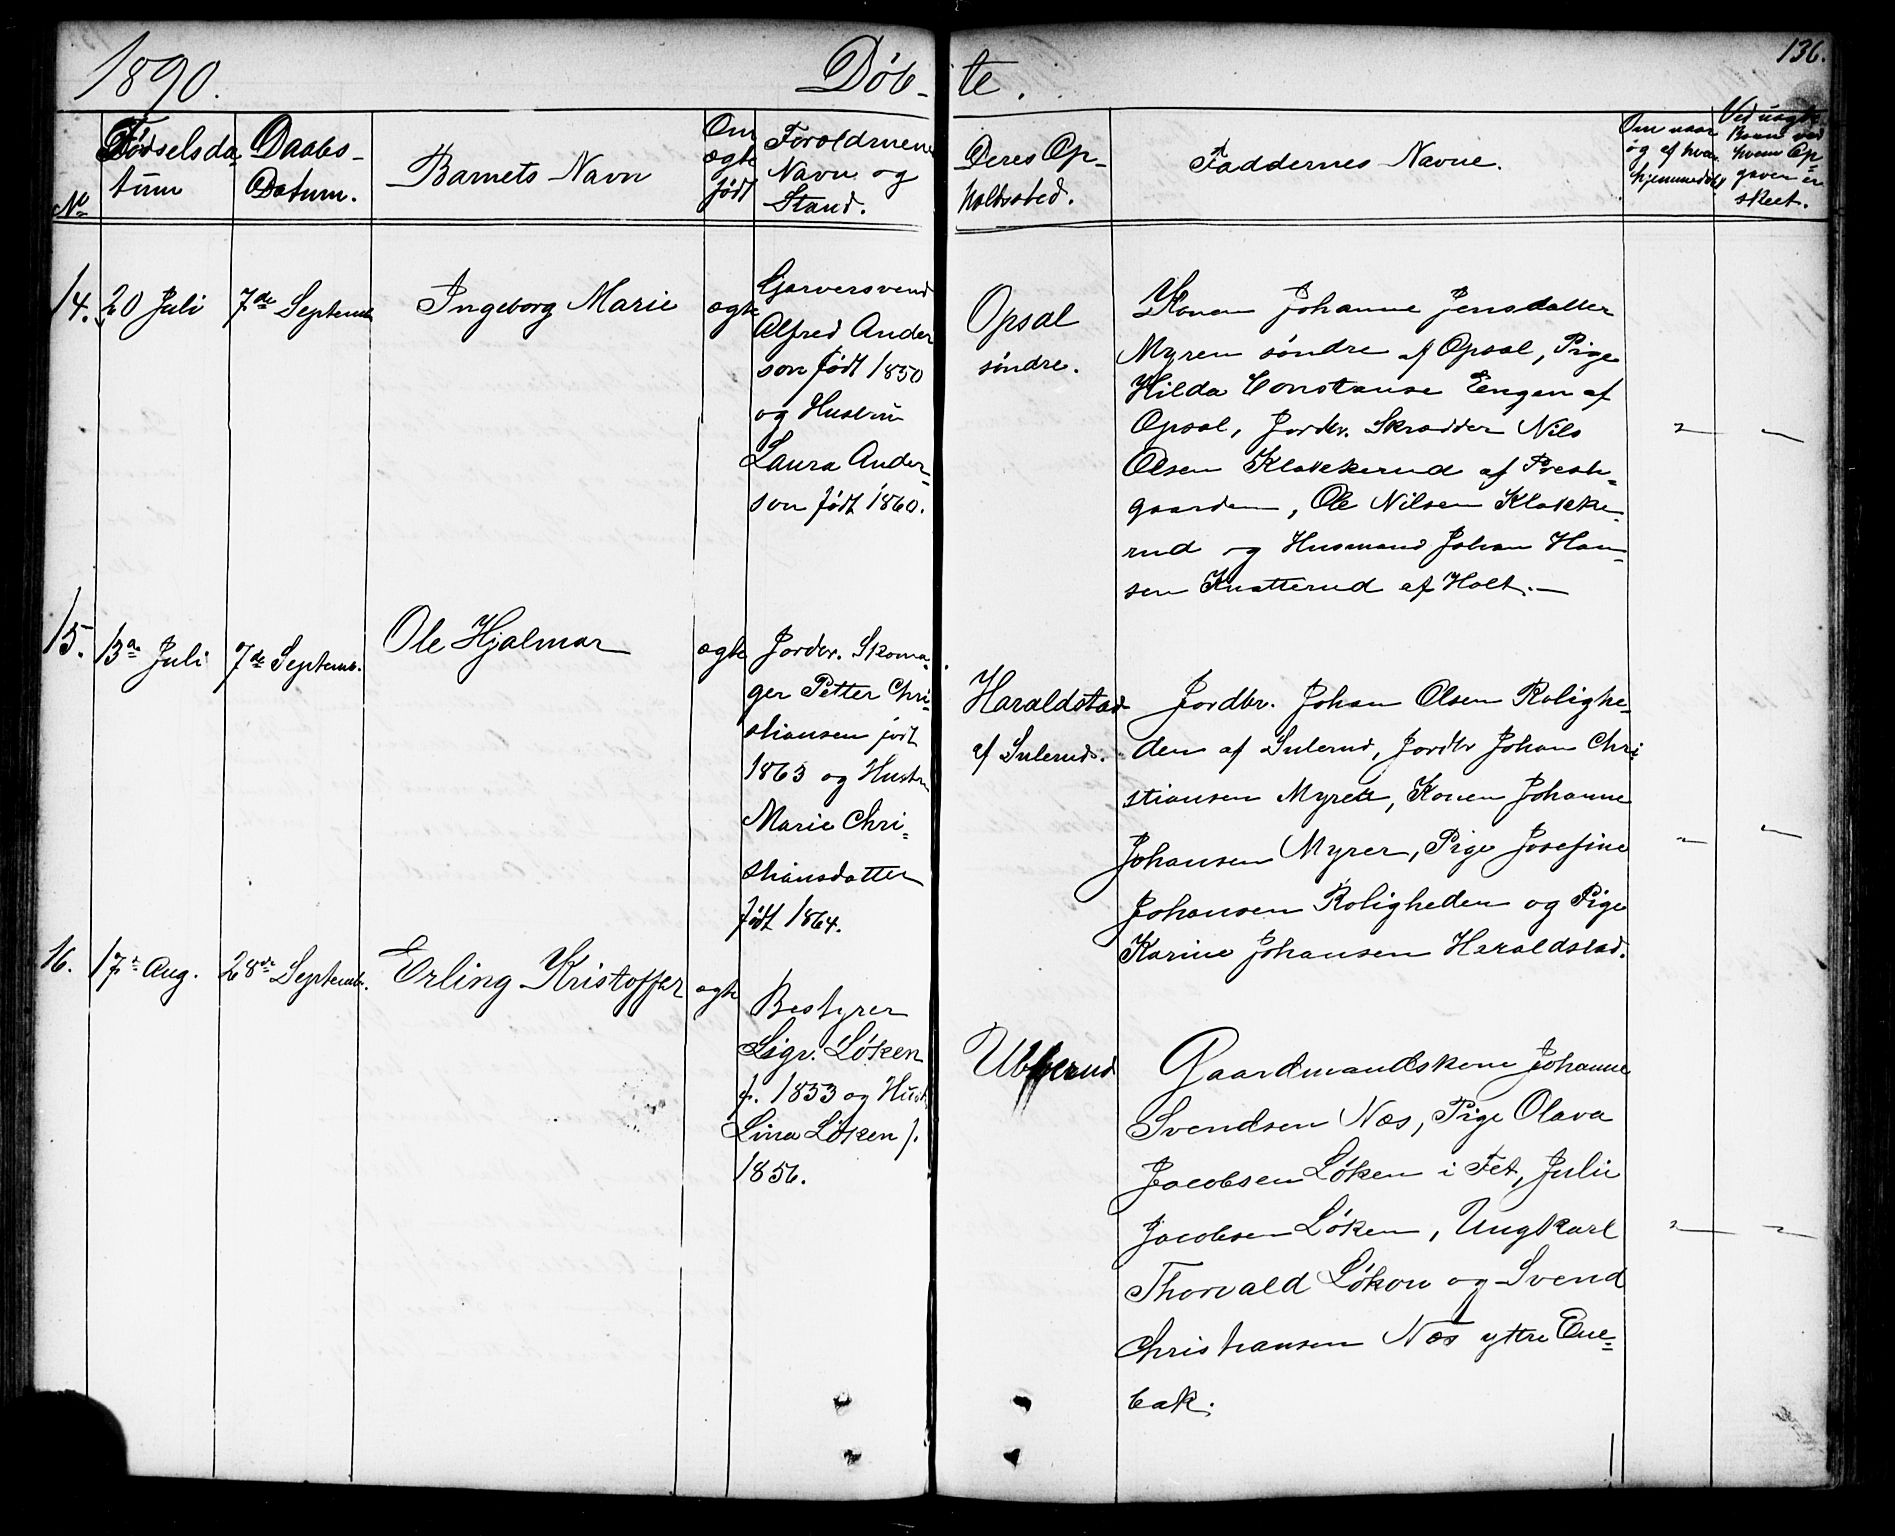 1890.
Døb-
te.
136.
No
Fødselsda-
tum
Daabs-
Datum.
Barnets Navn
Om
ægte
født
Forældrnenes
Navn og
Stand.
Deres Op-
holdssted.
Faddernes Navne.
Om naar
og af hvem
hjemmedøbt
Ved uægte
Børn ved
hvem Op-
gaven er
skeet.
14.
20 Juli
7de Septemb
Ingeborg Marie
ægte
Garversvend
Alfred Ander
son født 1850
og Hustru
Laura Ander-
son født 1860.
Opsal
søndre.
Konen Johanne Jensdatter
Myren søndre af Opsal, Pige
Hilda Constanse Engen af
Opsal, Jordbr. Skrædder Nils
Olsen Klakkerud af Prest-
gaarden, Ole Nilsen Klakke-
rud og Husmand Johan Han-
sen Knatterud af Holt.—
15.
13de Juli
7de Septemb.
Ole Hjalmar
ægte
Jordbr. Skoma-
ger Petter Chri-
stiansen født
1863 og Hustru
Marie Chri-
stiansdatter
født 1864.
Haraldstad
af Sulerud.
Jordbr. Johan Olsen Rolighe-
den af Sulerud, Jordbr Johan Chri-
stiansen Myrer, Konen Johanne
Johansen Myrer, Pige Josefine
Johansen Roligheden og Pige
Karine Johansen Haraldstad.
16.
17de Aug.
28de Septemb.
Erling Kristoffer
ægte
Bestyrer
Sigv. Løken
f. 1853 og Hust.
Lina Løken f.
1856.
Ubberud
Gaardmandskone Johanne
Svendsen Næs, Pige Olava
Jacobsen Løken i Fet, Julie
Jacobsen Løken, Ungkarl
Thorvald Løken og Svend
Christiansen Næs yttre Ene-
bak.